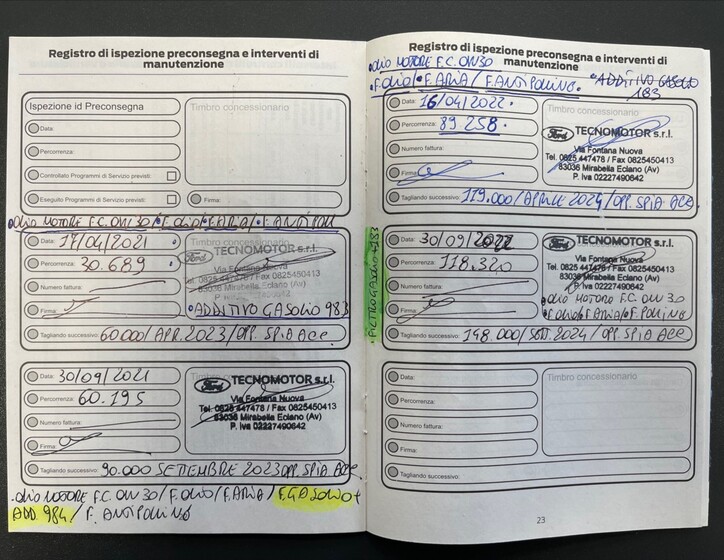 Registro di ispezione preconsegna e interventi di
manutenzione
Ispezione id Preconsegna
Data:
Percorrenza:
Controllato Programmi di Servizio previsti:
Eseguito Programmi di Servizio previsti:
Timbro concessionario
Firma:
OLIO MOTORE F.C. 0W30/F.OLIO/F.ARIA/F.ANTIPOLL
Data: 17/04/2021
Percorrenza: 30.689
Numero fattura:
Firma:
Timbro concessionario
Ford TECNOMOTOR s.r.l.
Via Fontana Nuova
Tel. 0825 447478 / Fax 0825450413
83036 Mirabella Eclano (Av)
P. Iva 02227490642
ADDITIVO GASOLIO 983
Tagliando successivo: 60000/APR.2023/OPP. SPIA ACC
Data: 30/09/2021
Percorrenza: 60.195
Numero fattura:
Firma:
Timbro concessionario
Ford TECNOMOTOR s.r.l.
Via Fontana Nuova
Tel. 0825 447478 / Fax 0825450413
83036 Mirabella Eclano (Av)
P. Iva 02227490642
Tagliando successivo: 90.000 SETTEMBRE 2023 OPP. SPIA ACC
OLIO MOTORE F.C. 0W30/F.OLIO/F.ARIA/F.GASOLIO+
ADD 984/F. ANTIPOLLINO
Registro di ispezione preconsegna e interventi di
OLIO MOTORE F.C. 0W30 manutenzione
F.OLIO/F.ARIA/F.ANTIPOLLINO. ADDITIVO GASOLIO
183
Data: 16/04/2022
Percorrenza: 89258
Numero fattura:
Firma:
Timbro concessionario
Ford TECNOMOTOR s.r.l.
Via Fontana Nuova
Tel. 0825 447478 / Fax 0825450413
83036 Mirabella Eclano (Av)
P. Iva 02227490642
Tagliando successivo: 119.000/APRILE 2024/OPP. SPIA ACC.
FILTRO GASOLIO+183
Data: 30/09/2022
Percorrenza: 118.320
Numero fattura:
Firma:
Timbro concessionario
Ford TECNOMOTOR s.r.l.
Via Fontana Nuova
Tel. 0825 447478 / Fax 0825450413
83036 Mirabella Eclano (Av)
P. Iva 02227490642
OLIO MOTORE F.C. 0W30
F.OLIO/F.ARIA/F.POLLINO
Tagliando successivo: 148.000/SETT.2024/OPP. SPIA ACC
Data:
Percorrenza:
Numero fattura:
Firma:
Timbro concessionario
Tagliando successivo:
23